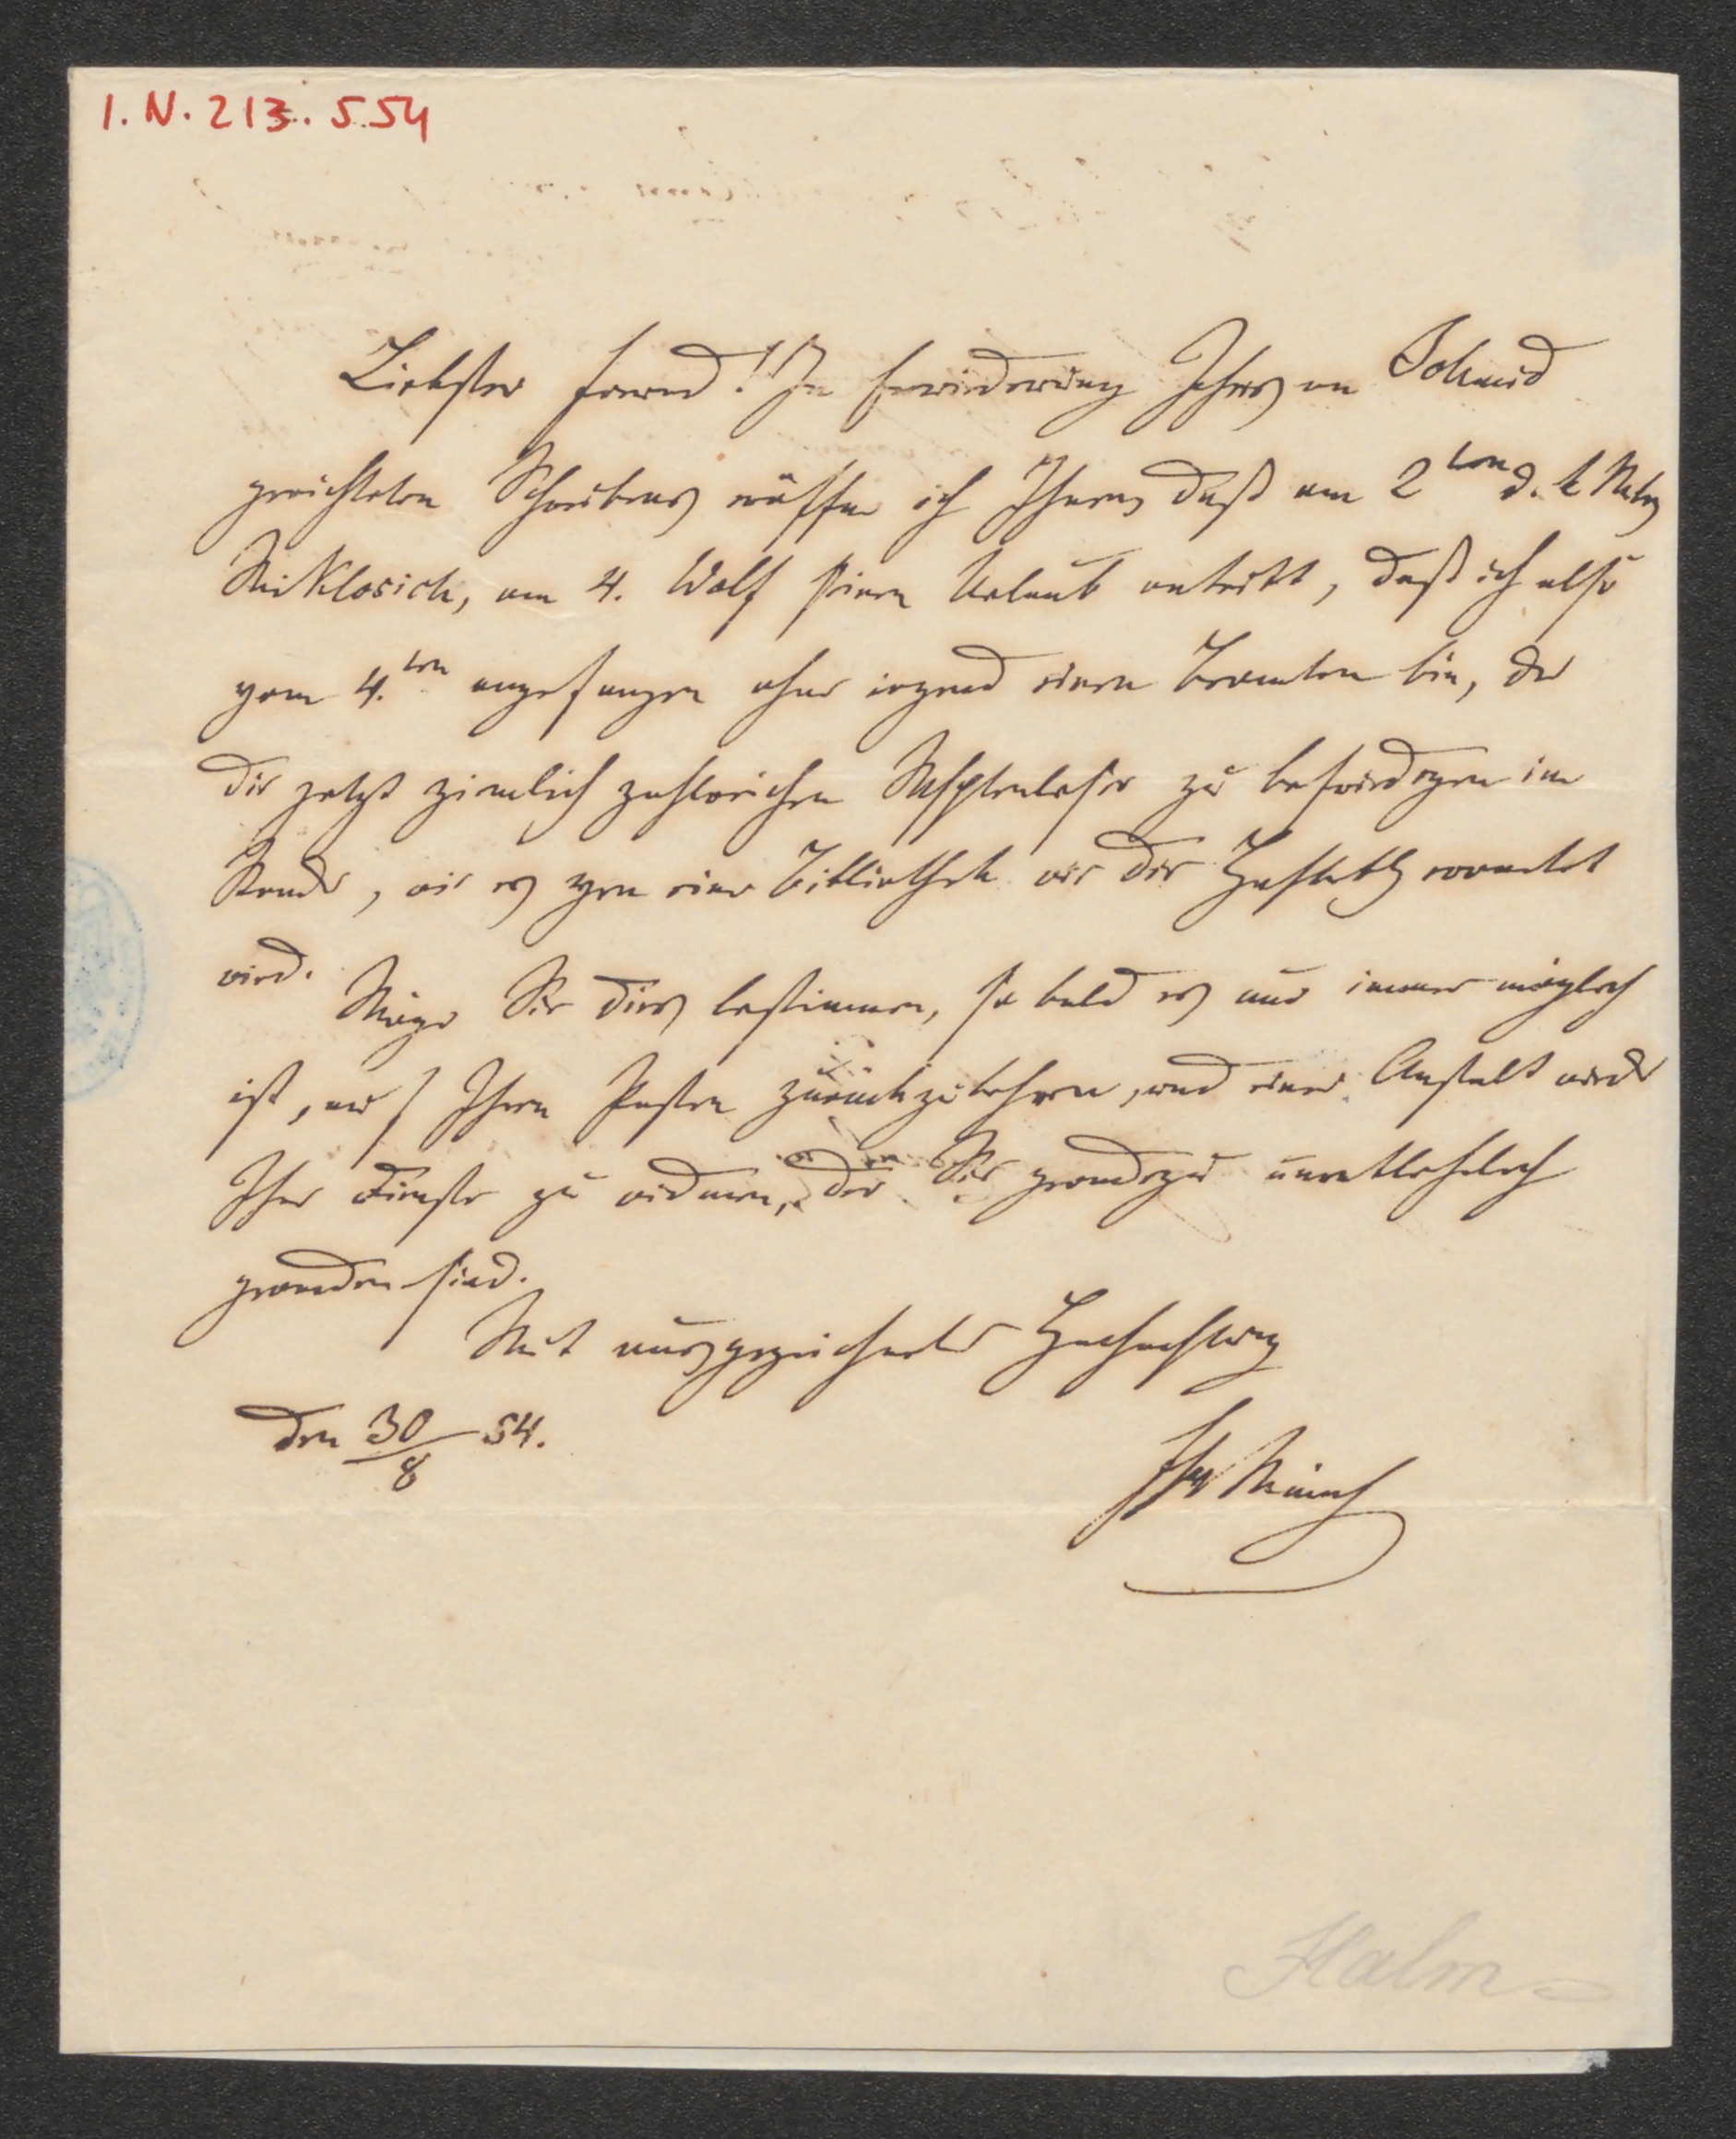 I.N. 213.554
Liebster Freund! In Erwiederung Ihres an Schmid
gerichteten Schreibens eröffne ich Ihnen, daß am 2ten d. k. Mts
Miklosich, am 4. Wolf seinen Urlaub antritt, daß ich also
vom 4.ten angefangen ohne irgend einen Beamten bin, der
die jetzt ziemlich zahlreichen Mspten leser zu befriedigen im
Stande, wie es von einer Bibliothek wie die Hofbibl. erwartet
wird.
Möge Sie dies bestimmen, so bald es nur immer möglich
ist, auf Ihren Posten zurückzukehren, und einer Anstalt wieder
Ihre Dienste zu widmen, der Sie geradezu unentbehrlich
geworden sind.
Mit ausgezeichneter Hochachtung
den 30/8 54.
Ihr Münch
Halm